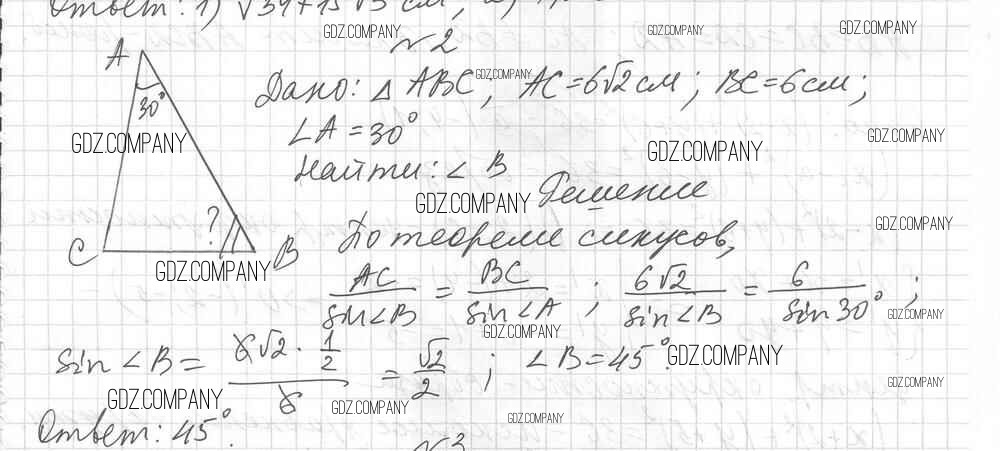 Ответ: 1) √
GDZ.COMPANY GDZ.COMPANY GDZ.COMPANY
№2
A
30°
C
B
?
Дано: △ ABC; AC=6√2 см; BC=6см;
GDZ.COMPANY
∠A=30°
GDZ.COMPANY GDZ.COMPANY GDZ.COMPANY
Найти: ∠ B
GDZ.COMPANY Решение
GDZ.COMPANY
По теореме синусов,
GDZ.COMPANY
AC/sin∠B = BC/sin∠A ; 6√2/sin∠B = 6/sin30° ;
GDZ.COMPANY GDZ.COMPANY
sin ∠B = 6√2 · 1/2 / 6 = √2/2 ; ∠B=45°.
GDZ.COMPANY GDZ.COMPANY
GDZ.COMPANY GDZ.COMPANY GDZ.COMPANY
Ответ: 45°.
№3